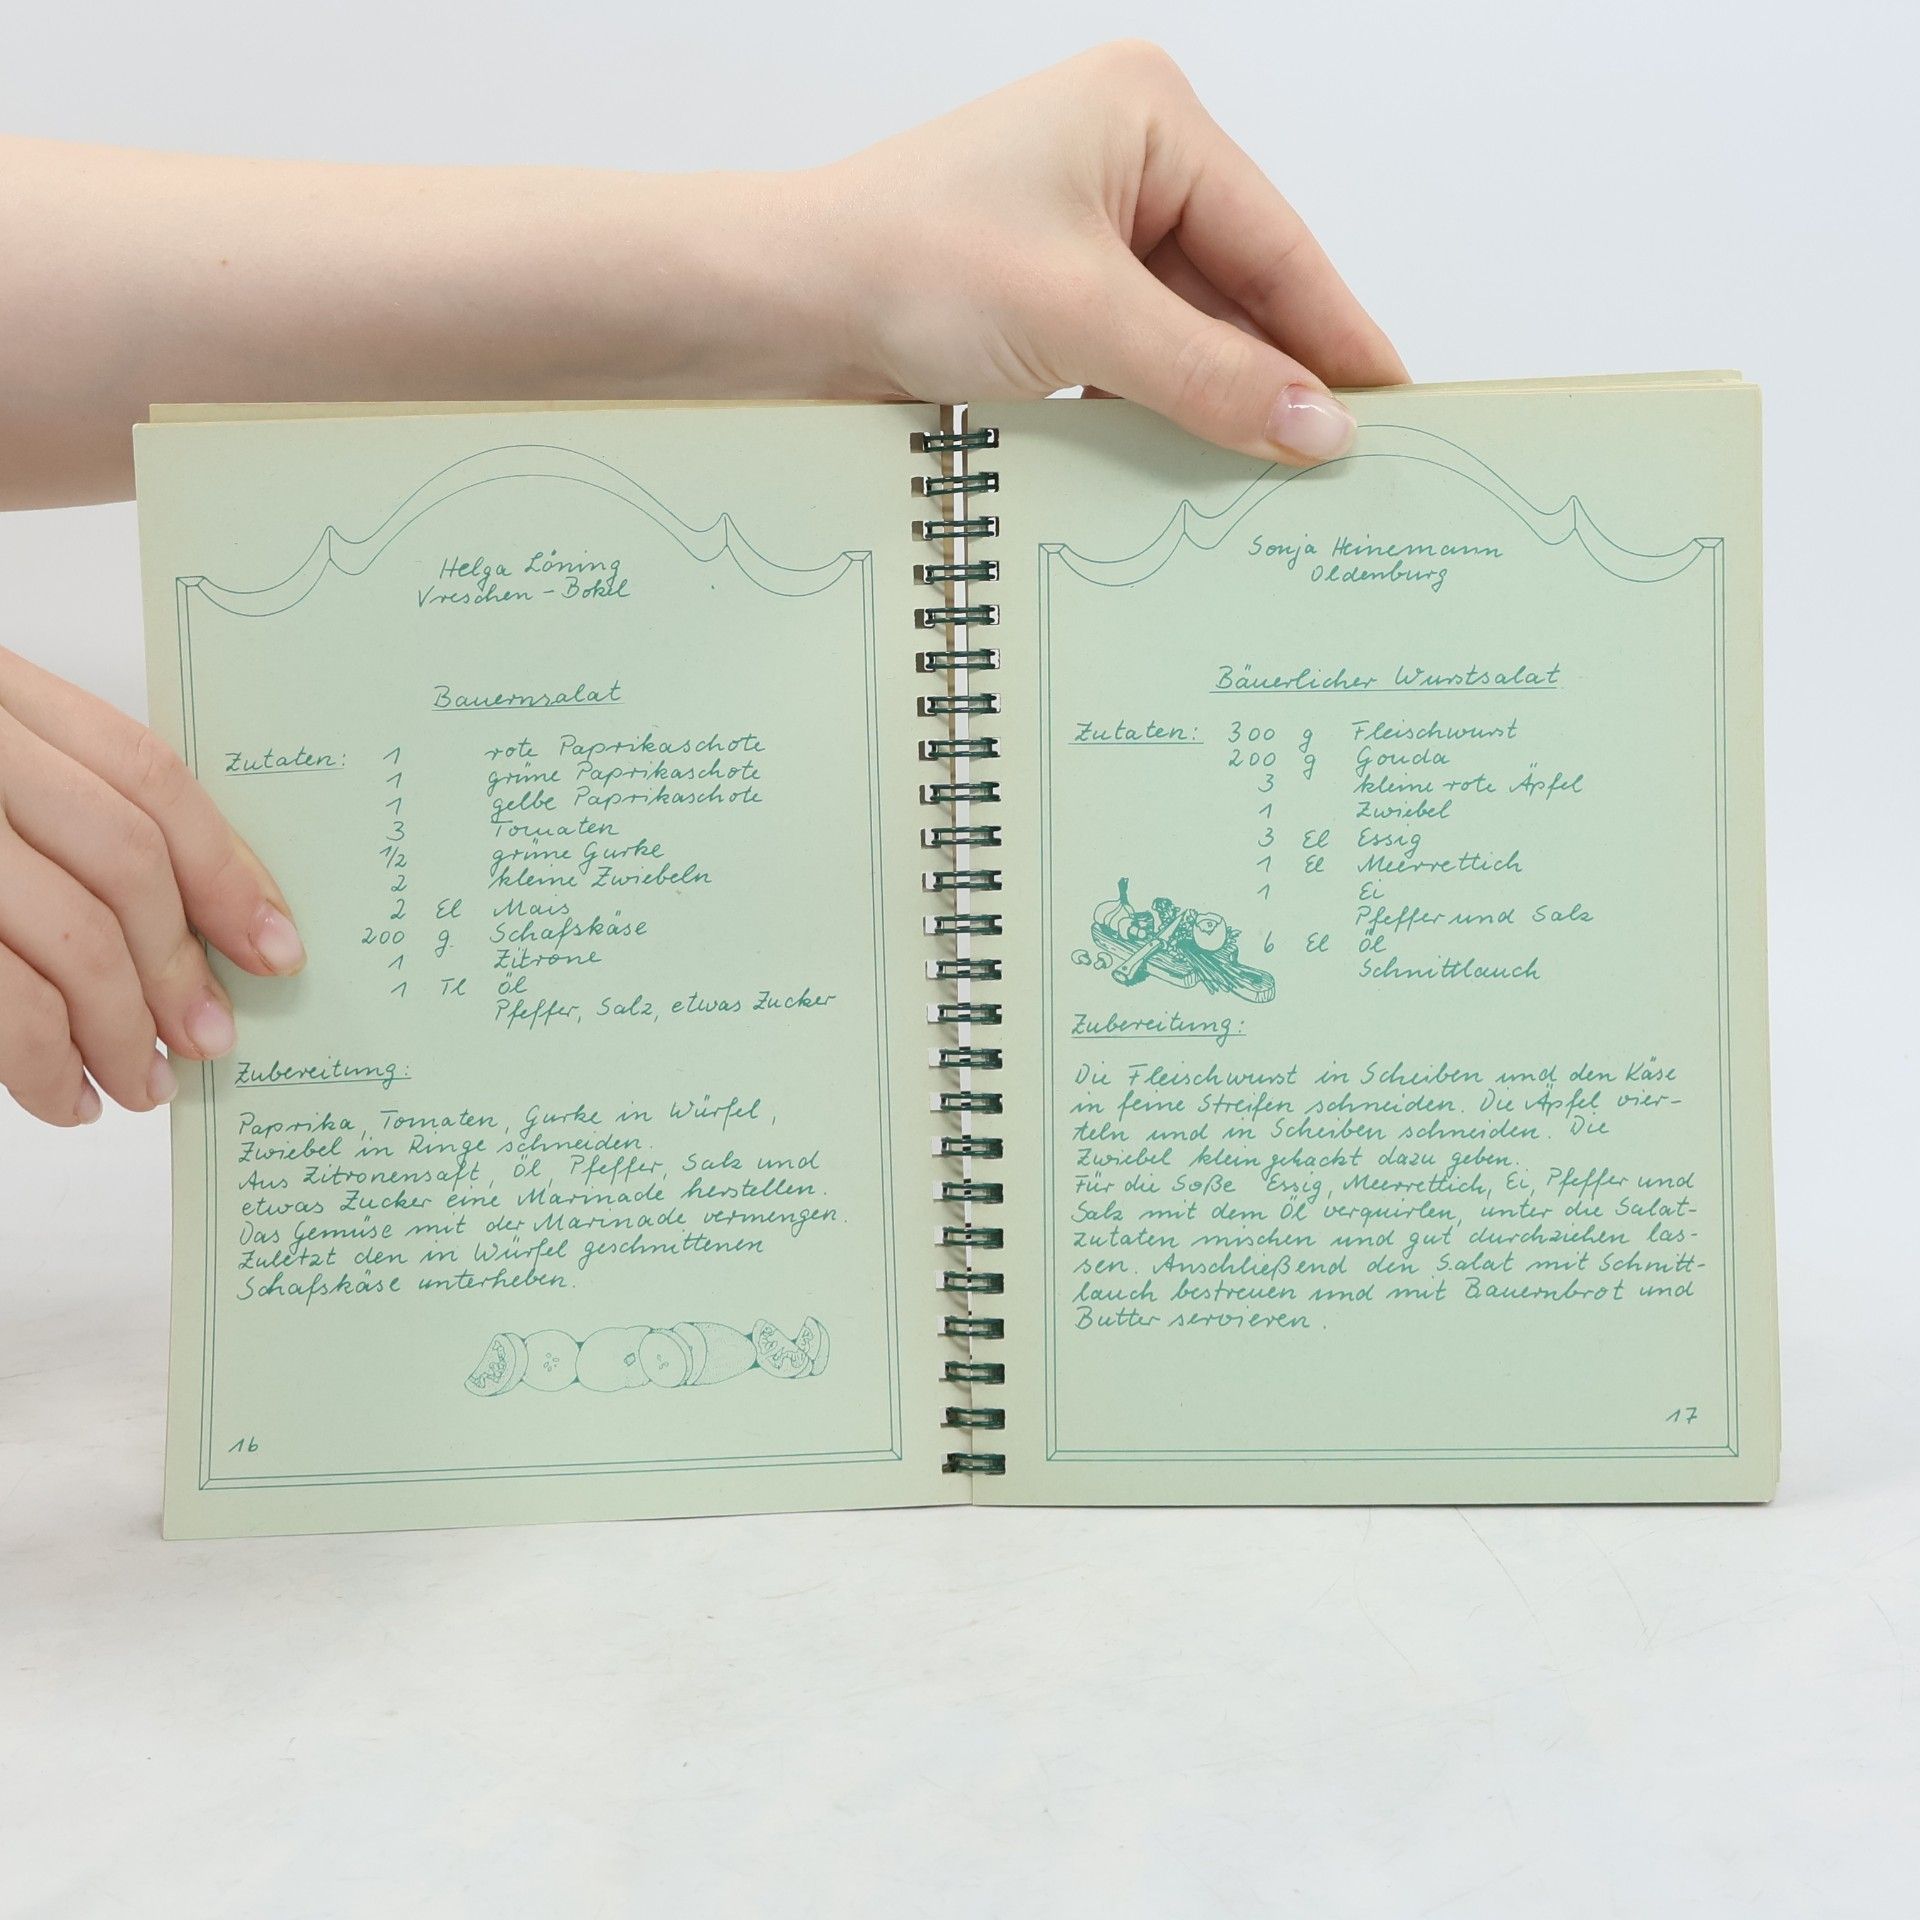 Helga Löning
Vreschen - Bokel
Bauernsalat
Zutaten: 1 rote Paprikaschote
1 grüne Paprikaschote
1 gelbe Paprikaschote
3 Tomaten
1/2 grüne Gurke
2 kleine Zwiebeln
2 El Mais
200 g. Schafskäse
1 Zitrone
1 Tl Öl
Pfeffer, Salz, etwas Zucker
Zubereitung:
Paprika, Tomaten, Gurke in Würfel,
Zwiebel in Ringe schneiden.
Aus Zitronensaft, Öl, Pfeffer, Salz und
etwas Zucker eine Marinade herstellen.
Das Gemüse mit der Marinade vermengen.
Zuletzt den in Würfel geschnittenen
Schafskäse unterheben.
16
Sonja Heinemann
Oldenburg
Bäuerlicher Wurstsalat
Zutaten: 300 g Fleischwurst
200 g Gouda
3 kleine rote Äpfel
1 Zwiebel
3 El Essig
1 El Meerrettich
1 Ei
Pfeffer und Salz
6 El Öl
Schnittlauch
Zubereitung:
Die Fleischwurst in Scheiben und den Käse
in feine Streifen schneiden. Die Äpfel vier-
teln und in Scheiben schneiden. Die
Zwiebel klein gehackt dazu geben.
Für die Soße Essig, Meerrettich, Ei, Pfeffer und
Salz mit dem Öl verquirlen, unter die Salat-
zutaten mischen und gut durchziehen las-
sen. Anschließend den Salat mit Schnitt-
lauch bestreuen und mit Bauernbrot und
Butter servieren.
17